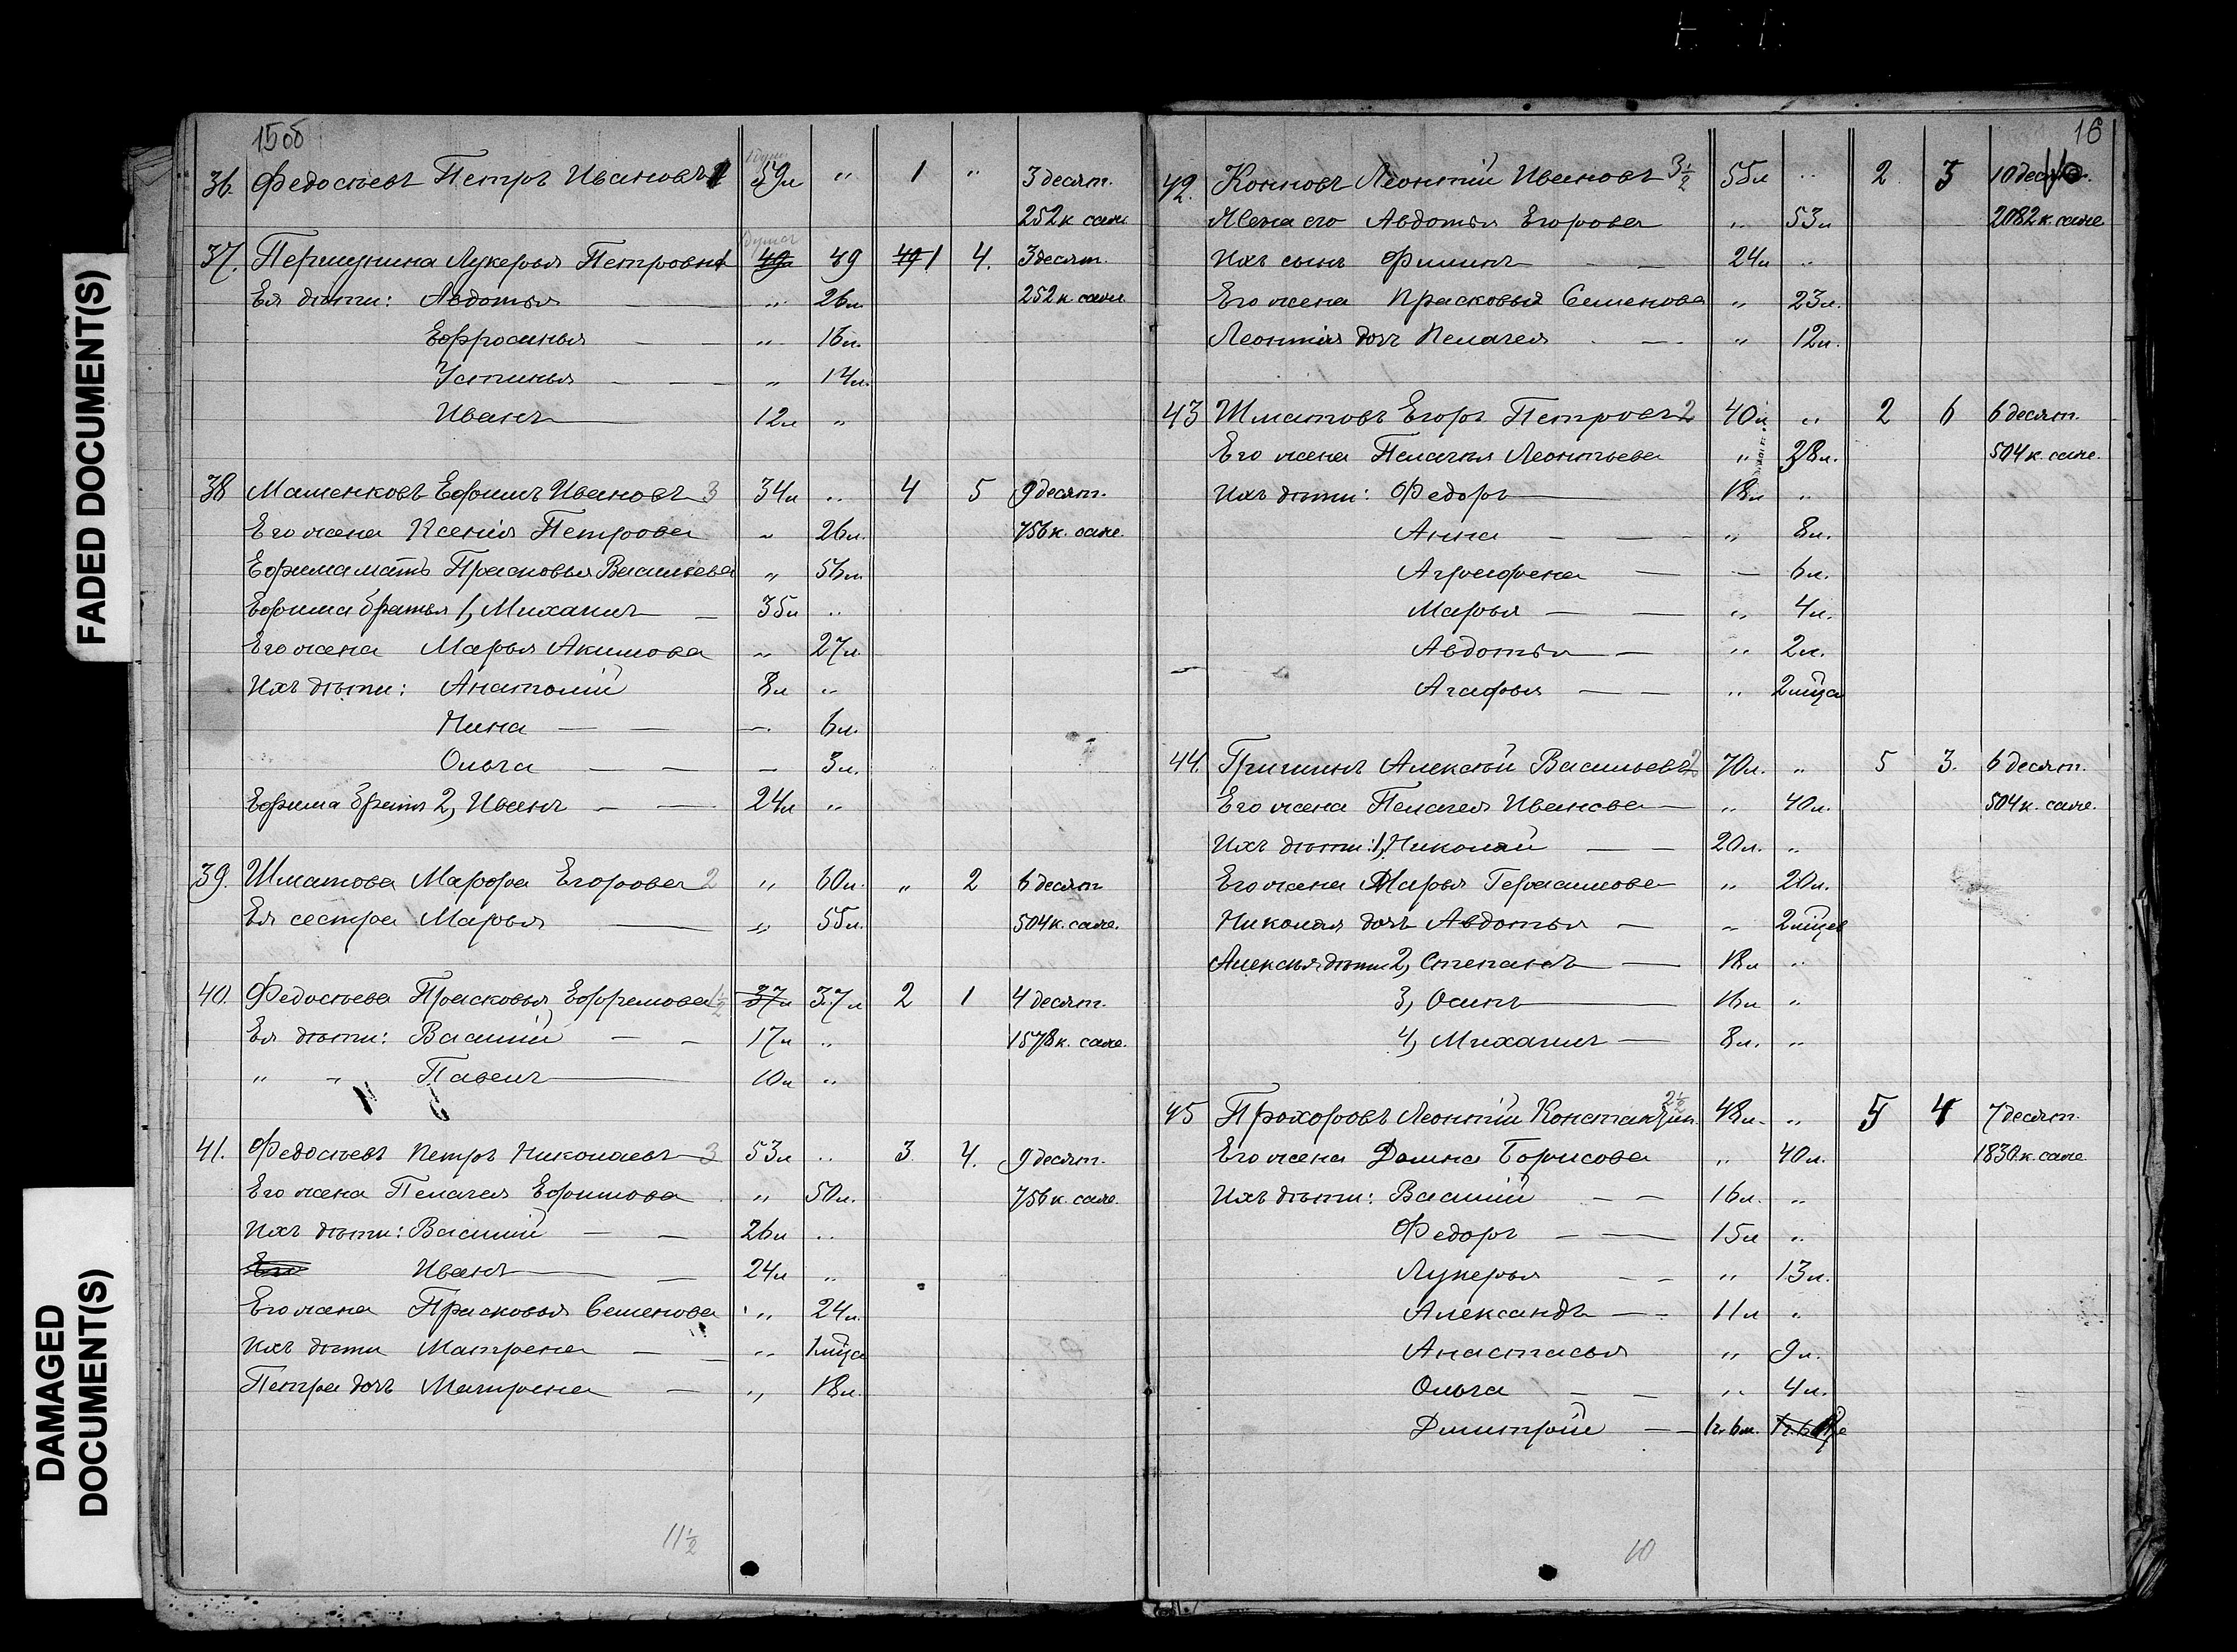 FADED DOCUMENT(S)
DAMAGED DOCUMENT(S)
15об
36. Федосѣевъ Петръ Ивановъ 1 59л " 1 " 3 десят.
252 к. саже
37. Першунина Лукерья Петровна 1 49 49 49 1 4. 3 десят.
Ея дѣти: Авдотья — " 26л. 252 к. саже
Ефросинья — — " 16л.
Устинья — — " 14л.
Иванъ — 12л "
38 Машенковъ Ефимъ Ивановъ 3 34л " 4 5 9 десят.
Его жена Ксенія Петрова " 26л. 756 к. саже.
Ефима мать Прасковья Васильева " 56л
Ефима братья 1, Михаилъ — 35л "
Его жена Марья Акимова " 27л.
Ихъ дѣти: Анатолій 8л "
Нина — — — 6л.
Ольга — — — 3л.
Ефима братъ 2, Иванъ — — 24л "
39. Шматова Марфа Егорова 2 " 60л. " 2 6 десят
Ея сестра Марья — " 55л. 504 к. саже.
40. Федосѣева Прасковья Ефремова 1½ 37л 37л 2 1 4 десят.
Ея дѣти: Василій — — 17л " 1578 к. саже.
" " Павелъ — 10л "
41. Федосѣевъ Петръ Николаевъ 3 53л " 3. 4. 9 десят.
Его жена Пелагея Ефимова " 50л. 756 к. саже.
Ихъ дѣти: Василій — — 26л "
Его Иванъ — — 24л "
Его жена Прасковья Семенова " 24л.
Ихъ дѣти Матрена — — " 1 мѣца
Петра дочь Матрена — " 18л.
11½
16
42. Конновъ Леонтій Ивановъ 3½ 55л " 2. 3 10 десят.
Жена его Авдотья Егорова " 53л 2082 к. саже
Ихъ сынъ Филипъ — — 24л "
Его жена Прасковья Семенова " 23л.
Леонтія дочь Пелагея — " 12л.
43 Шматовъ Егоръ Петровъ 2 40л " 2 6 6 десят.
Его жена Пелагея Леонтьева " 38л. 504 к. саже.
Ихъ дѣти: Федоръ — 18л "
Анна — — — " 8л.
Аграфена — — 6л.
Марья — — " 4л.
Авдотья — — " 2л.
Агафья — — " 2 мѣца
44. Гришинъ Алексѣй Васильевъ 2 70л. " 5 3. 6 десят.
Его жена Пелагея Иванова — " 40л. 504 к. саже.
Ихъ дѣти: 1, Николай — — 20л. "
Его жена Марья Герасимова " 20л.
Николая дочь Авдотья — " 2 мѣцев
Алексѣя дѣти 2, Степанъ — 18л "
3, Осипъ — 16л "
4, Михаилъ — 8л. "
45 Прохоровъ Леонтій Константин. 2½ 48л. " 5 4 7 десят.
Его жена Домна Борисова " 40л. 1830 к. саже
Ихъ дѣти: Василій — — 16л. "
Федоръ — — 15л "
Лукерья — — " 13л.
Александъ — — 11л "
Анастасья " 9л.
Ольга — — " 4л.
Дмитрій — — 1г. 6м.
10